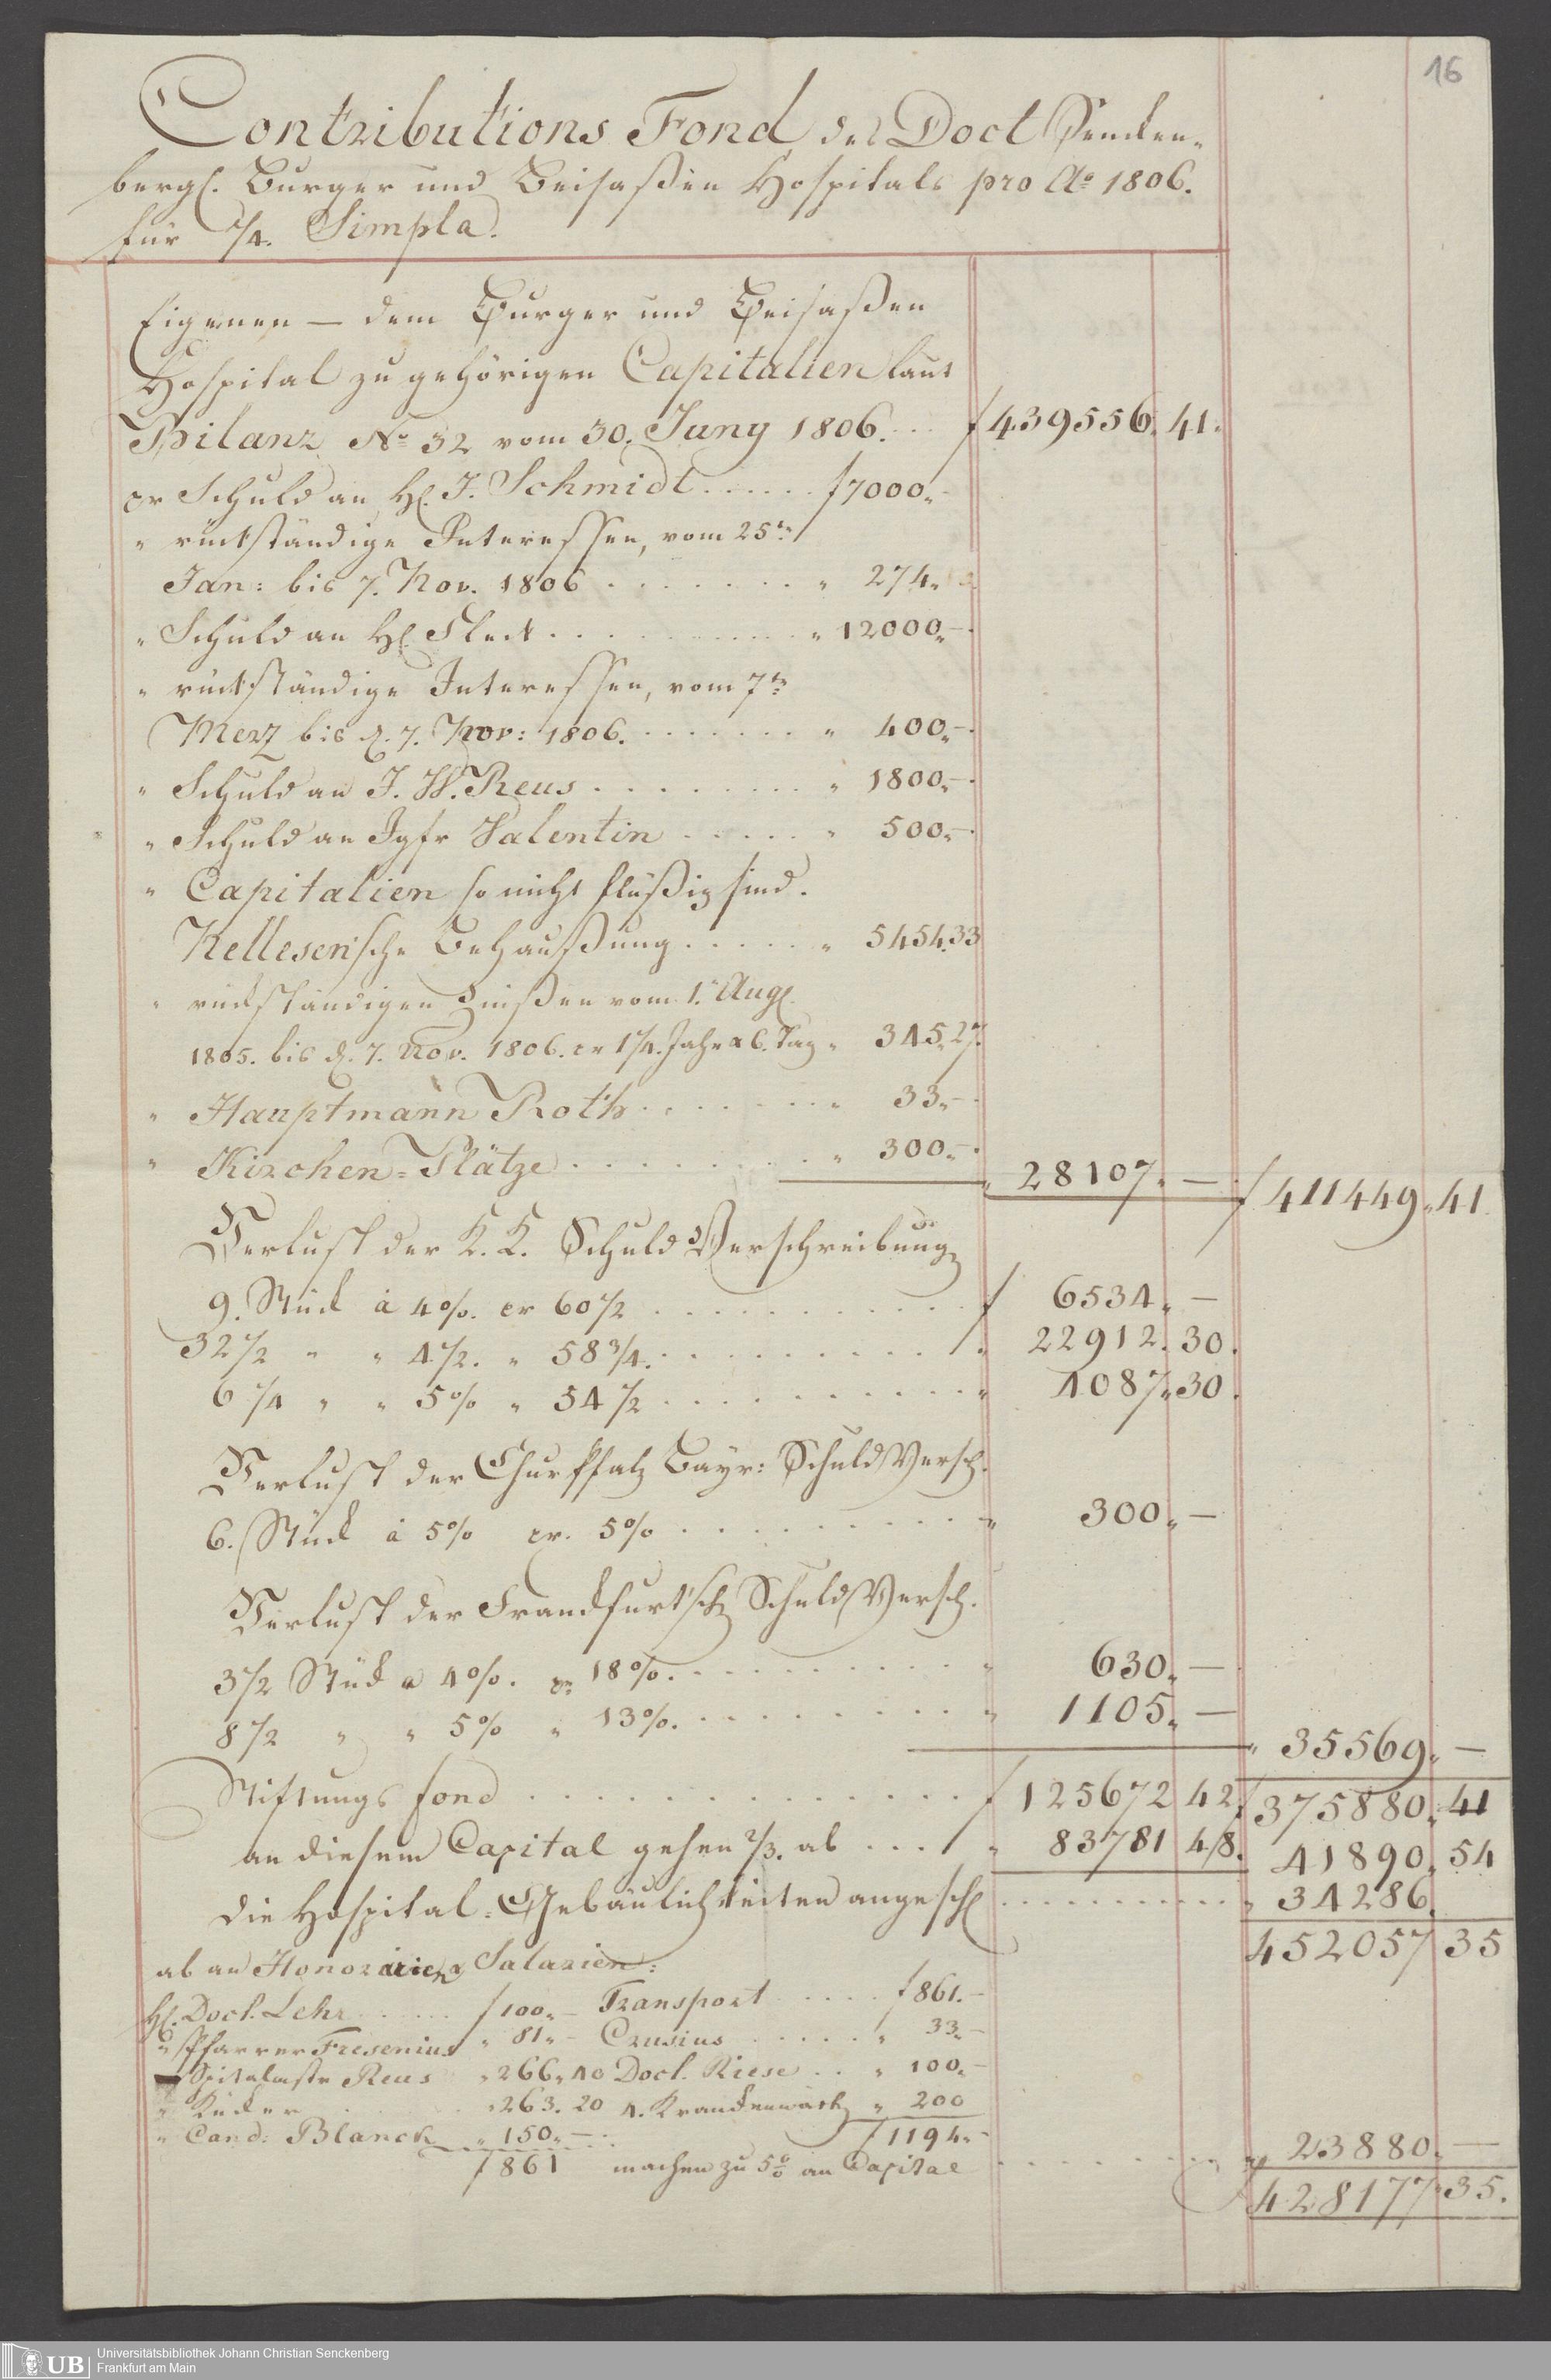 16
Contributions Fond des Doct Sencken-
bergs. Burger und Beisaßen Hospitals pro Ao 1806.
für 1/4. Simpla.
Eigenen — dem Burger und Beisaßen
Hospital zugehörigen Capitalien laut
Bilanz No 32 vom 30. Juny 1806. ... f 439556. 41.
Schuld an H. J. Schmidt ...... f 7000.-
" rückständige Interessen, vom 25ten
Jan: bis 7. Nov. 1806 ....... " 274.
" Schuld an H. Fleck ......... " 12000.-
" rückständige Interessen, vom 7ten
Merz bis d. 7. Nov: 1806. ....... " 400.-
" Schuld an J. W. Reus ........ " 1800.-
" Schuld an Jgfr Valentin ..... " 500.-
" Capitalien so nicht flüßig sind.
Behaußung ..... " 5454.33
" rückständigen Zinßen vom 1. Aug.
1805. bis d. 7. Nov. 1806. 1 1/4. Jahr a 6. Tag " 345.27.
" Hauptmann Roth ....... " 33.-
" Kirchen-Plätze ......... " 300.-
" 28107. — f 411449. 41.
Verlust der K. K. Schuld Verschreibung
9. Stück à 4%. 60 1/2 ........... f 6534. —
32 1/2 " " 4 1/2. " 58 3/4. ......... " 22912. 30.
6 1/4 " " 5% " 54 1/2 .......... " 4087. 30.
Verlust der Churpfalz Bayr: Schuld Versch.
6. Stück à 5% 5% ......... " 300. —
Verlust der Franckfurt'sch Schuld Versch.
3 1/2 Stück a 4%. 18%. ......... " 630. —
8 1/2 " " 5% " 13%. ......... " 1105. —
" 35569. —
Stiftungs fond ............. f 125672 42. f 375880. 41
an diesem Capital gehen 2/3. ab .... " 83781 48. 41890. 54
die Hospital-Gebäulichkeiten angesch. .......... " 34286.
452057 35
ab an Honorarien Salarien:
H. Doct. Lehr ..... f 100.- Transport .... f 861.-
" Pfarrer Fresenius " 81.- Crusius ..... " 33.-
Spitalmstr Reus " 266.40 Doct. Riese .. " 100.-
" " 263. 20 4. Kranckenwärt " 200
" Cand: Blanck " 150.- f 1194.-
f 861 machen zu 5% an Capital ........ 23880. —
428177. 35.
UB Universitätsbibliothek Johann Christian Senckenberg
Frankfurt am Main